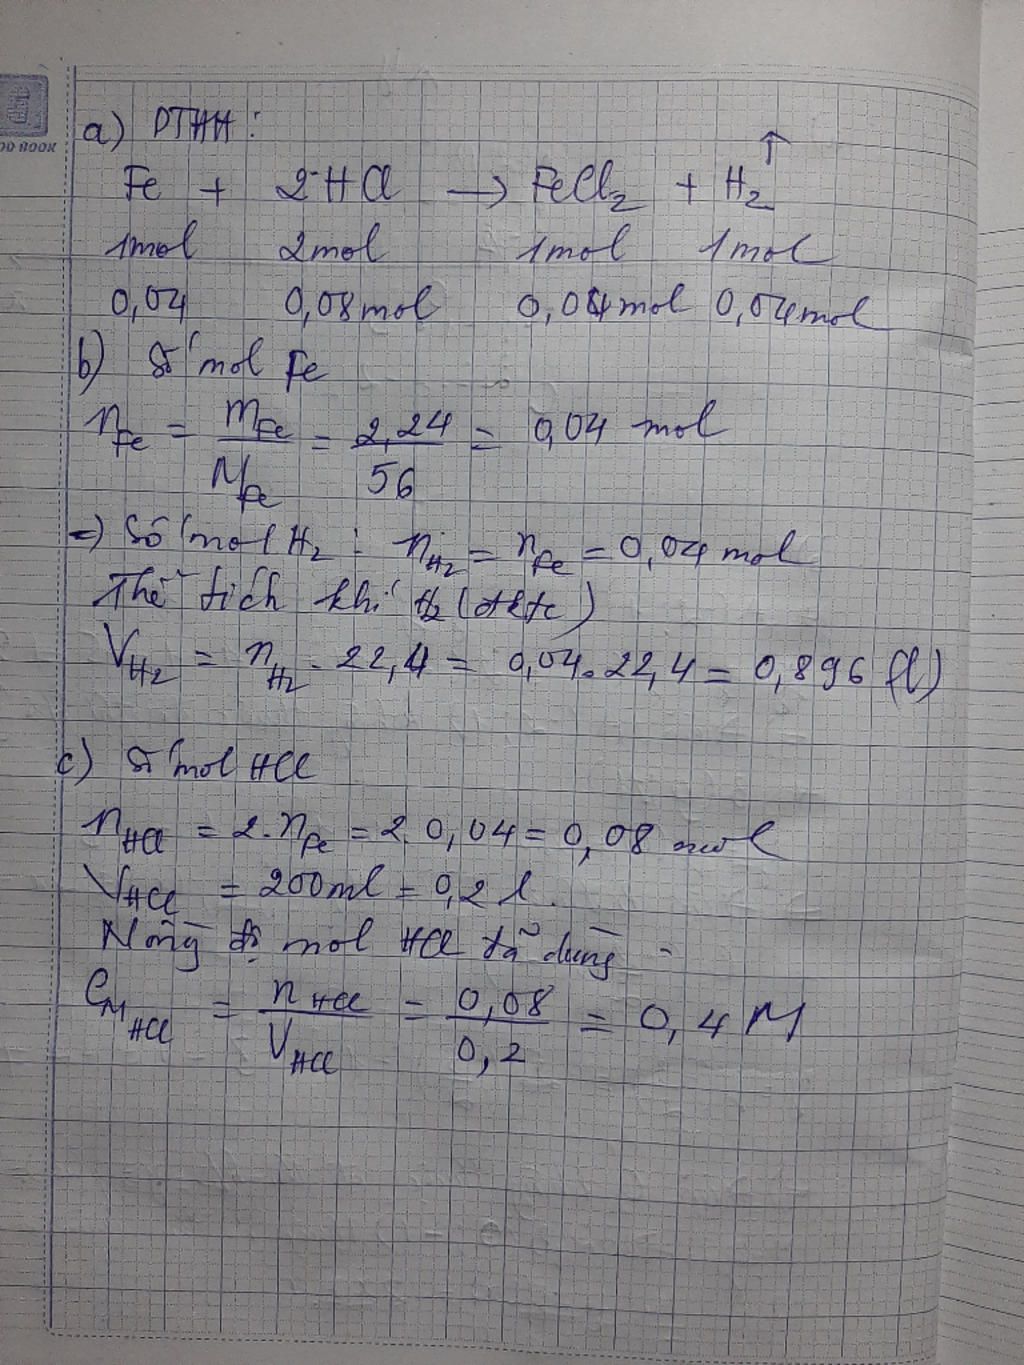 OO BOOK
a) PTHH:
Fe + 2HCl → FeCl₂ + H₂ ↑
1mol 2mol 1mol 1mol
0,04 0,08mol 0,04mol 0,04mol
b) Số mol Fe
n_Fe = m_Fe / M_Fe = 2,24 / 56 = 0,04 mol
=) Số mol H₂ : n_H₂ = n_Fe = 0,04 mol
Thể tích khí H₂ (đktc)
V_H₂ = n_H₂ . 22,4 = 0,04.22,4 = 0,896 (l)
c) Số mol HCl
n_HCl = 2.n_Fe = 2.0,04 = 0,08 mol
V_HCl = 200ml = 0,2 l.
Nồng độ mol HCl đã dùng
C_M HCl = n_HCl / V_HCl = 0,08 / 0,2 = 0,4 M